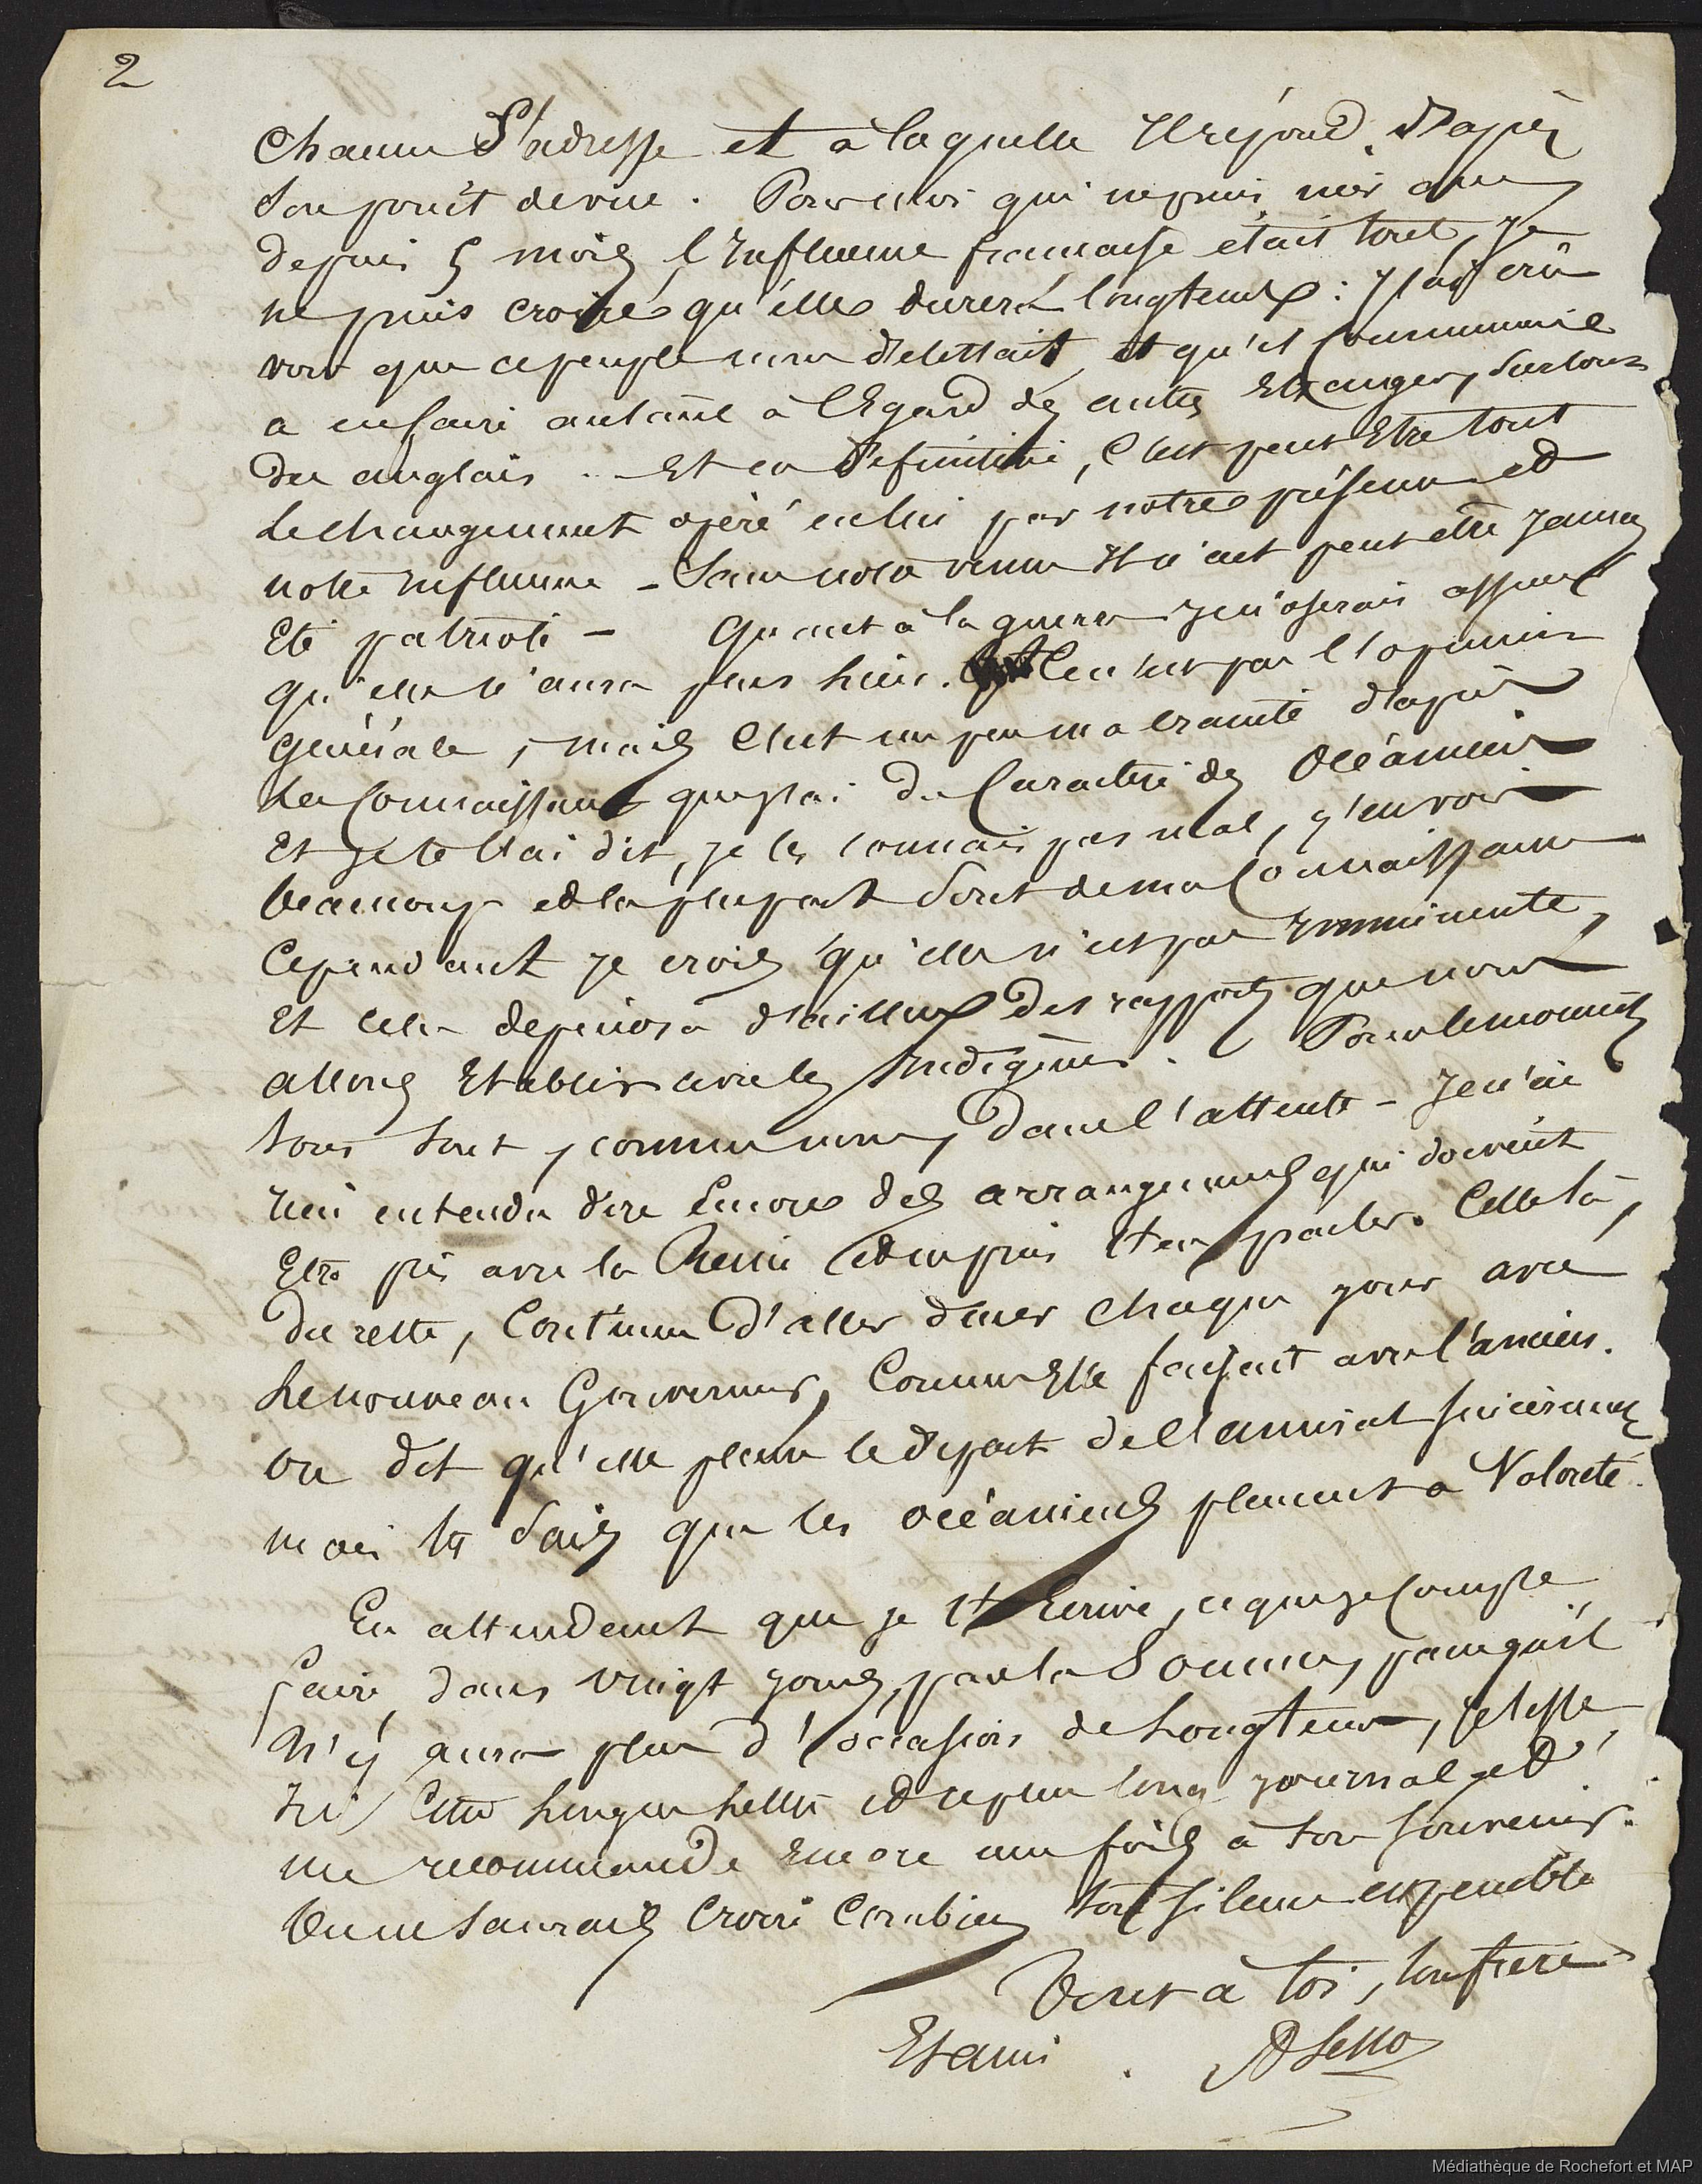 2
Chacun S'adresse et à laquelle Il répond. D'après
Son point de vue. Pour moi qui ne puis nier que
depuis 5 mois l'Influence francaise était tout, Je
ne puis croire qu'elle durera longtemps: J'ai crû
voir que ce peuple nous détestait, et qu'il Commence
a en faire autant à l'Egard des autres Etrangers, Surtout
des anglais. Et en Definitive, C'est peut Etre tout
Le changement opéré en lui par notre présence et
notre Influence - Sans notre venue Il n'eut peut être Jamais
Eté patriote - Quant à la guerre Je n'oserais assurer
qu'elle n'aura plus lieu. Ce n'est pas l'opinion
générale, mais C'est un peu ma crainte d'après
La Connaissance que J'ai du Caractère des Océaniens
Et Je te l'ai dit, Je les connais pas mal, J'en vois
beaucoup et la plupart Sont de ma Connaissance
Cependant Je crois qu'elle n'est pas Imminente,
Et cela dépendra d'ailleurs des rapports que nous
allons Etablir avec les Indigènes. Pour le moment
tous Sont, comme nous, dans l'attente - Je n'ai
rien entendu dire Encore des arrangements qui doivent
Etre pris avec la Reine et ne puis t'en parler. Celle là,
du reste, Continue d'aller diner chaque jour avec
Le nouveau Gouverneur, Comme Elle faisait avec l'ancien.
On dit qu'elle pleure le départ de l'amiral sincèrement
mais tu Sais que les océaniens pleurent a Volonté.
En attendant que je t'Ecrive, ce que je Compte
faire, dans vingt jours, par la Somme, parcequ'il
N'y aura plus d'occasion de Longtems, Je laisse
Ici Cette Longue Lettre et ce plus long journal et
me recommande Encore une fois à ton Souvenir.
Tu ne Saurais Croire Combien ton Silence est penible
Tout à toi, ton frere
Et ami.